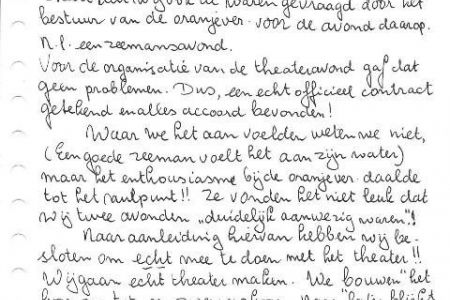 waren gevraagd door het
bestuur van de oranjever. voor de avond daarop.
n.l. een zeemansavond.
Voor de organisatie van de theateravond gaf dat
geen problemen. Dus, een echt officieel contract
getekend en alles accoord bevonden!
Waar we het aan voelden weten we niet,
(Een goede zeeman voelt het aan zijn water)
maar het enthousiasme bij de oranjever. daalde
tot het nulpunt!! Ze vonden het niet leuk dat
wij twee avonden „duidelijk aanwezig waren"!
Naar aanleiding hiervan hebben wij be-
sloten om echt mee te doen met het theater!!
Wij gaan echt theater maken. We bouwen "het